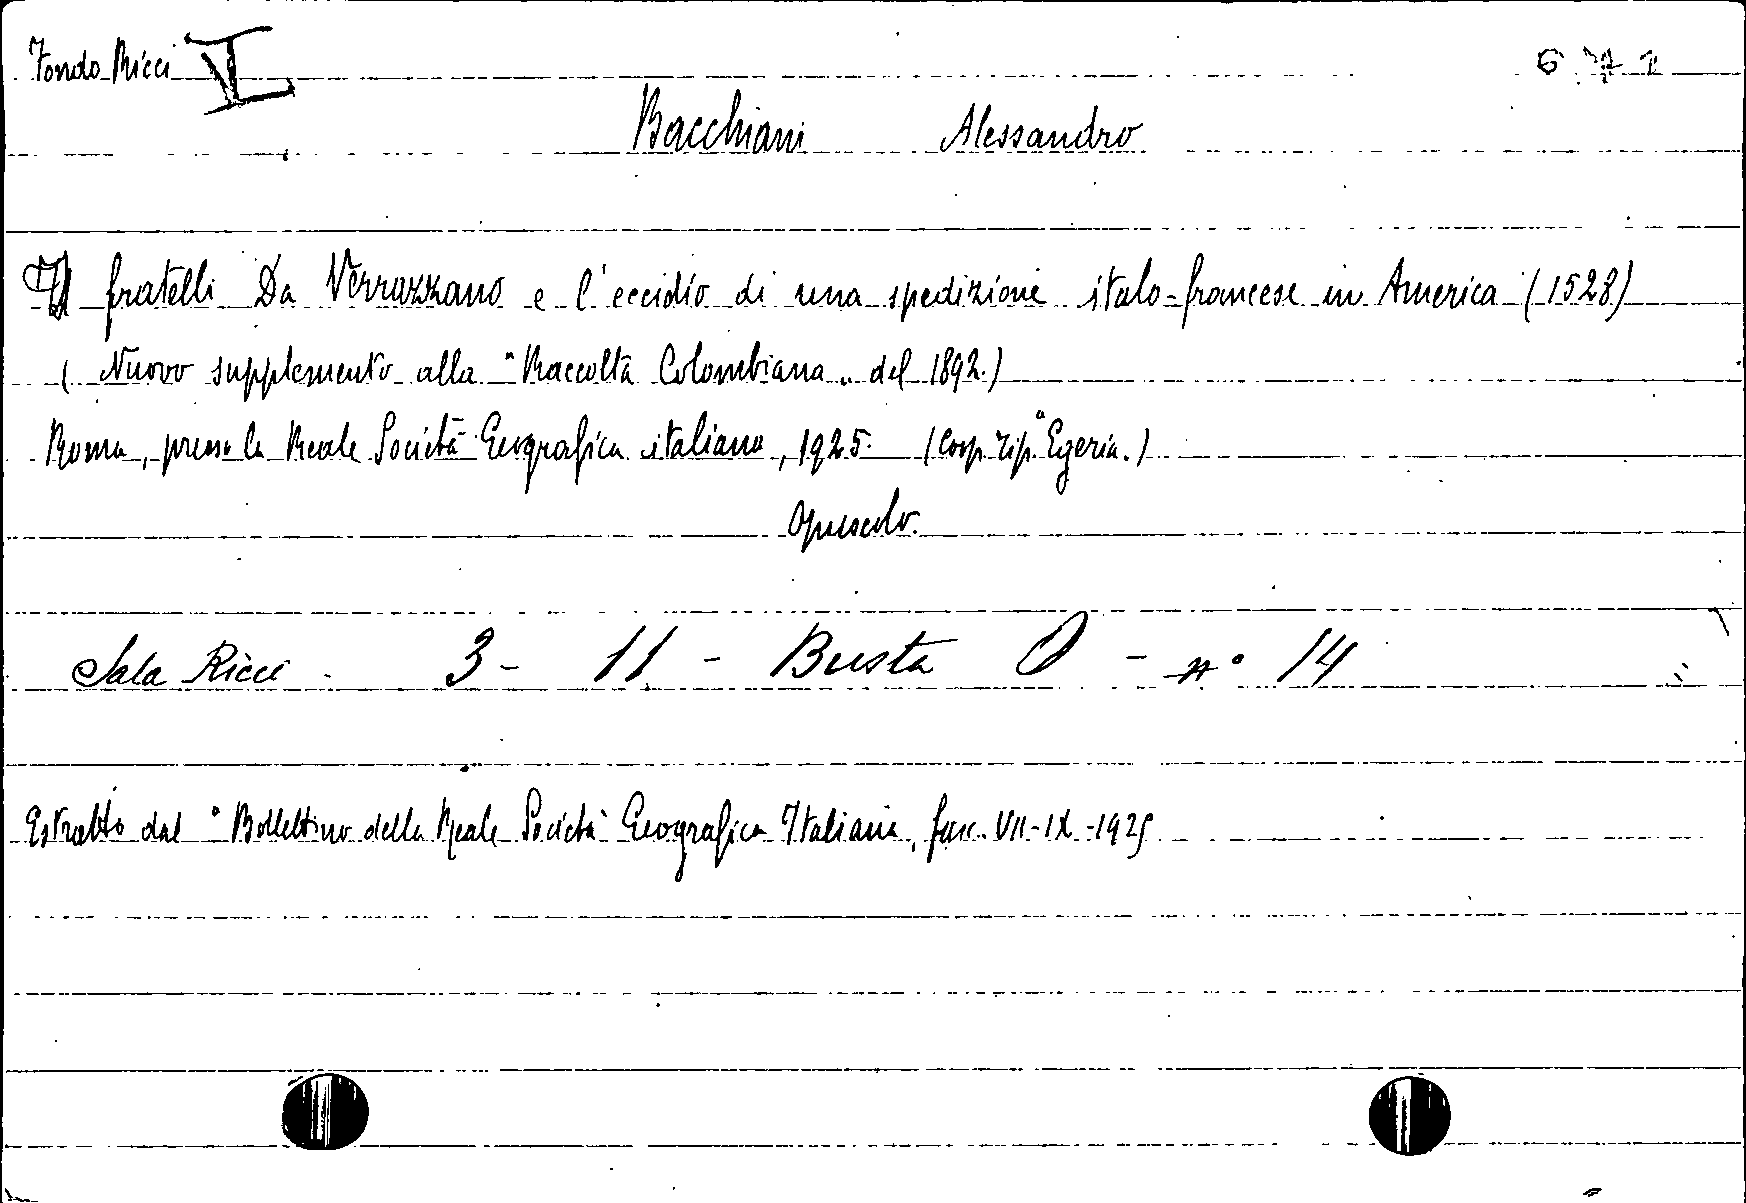 Fondo Ricci VI
6 7 1
Bacchiani Alessandro
I fratelli Da Verrazzano e l'eccidio di una spedizione italo-francese in America (1528)
(Nuovo supplemento alla "Raccolta Colombiana" del 1892.)
Roma, presso la Reale Società Geografica italiana, 1925. (Coop. Tip. "Egeria.)
Opuscolo.
Sala Ricci. 3 - 11 - Busta O - n° 14
Estratto dal "Bollettino della Reale Società Geografica Italiana, fasc. VII-IX-1925